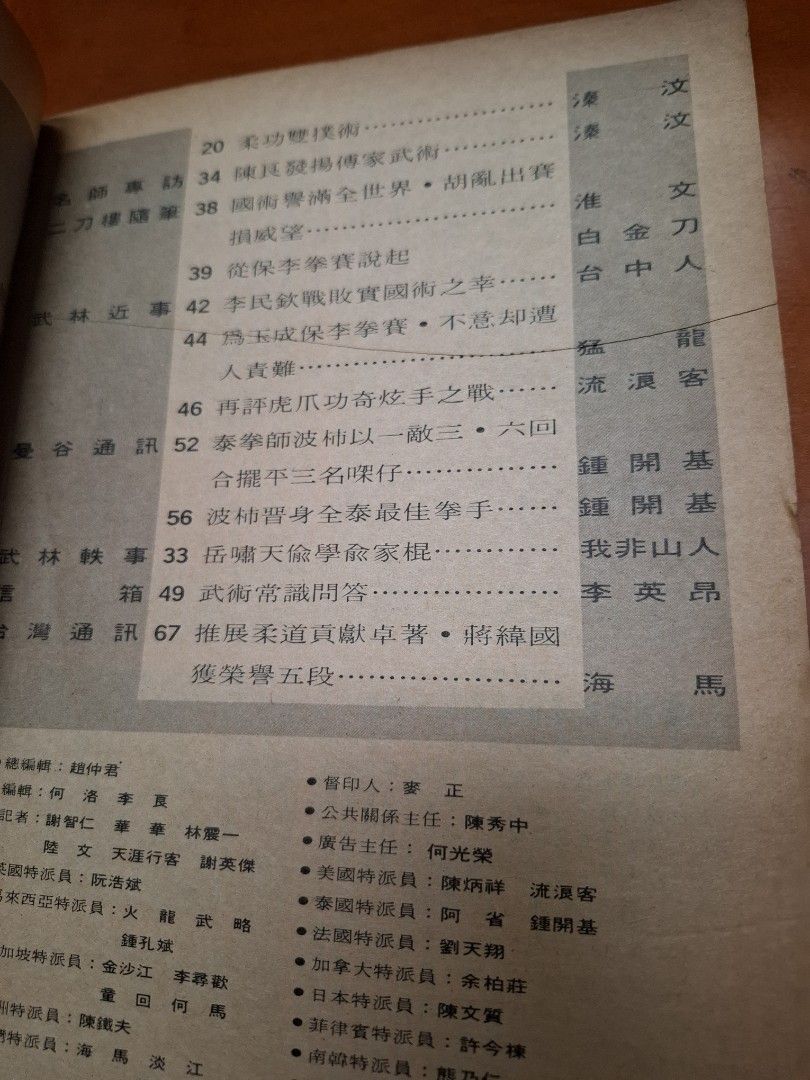 20 柔功雙撲術⋯⋯⋯⋯ 溱汶
名師專訪 34 陳艮發揚傅家武術⋯⋯⋯⋯ 溱汶
二刀樓隨筆 38 國術譽滿全世界・胡亂出賽
損威望⋯⋯⋯⋯ 淮文
39 從保李拳賽說起 白金刀
武林近事 42 李民欽戰敗實國術之幸⋯⋯ 台中人
44 爲玉成保李拳賽・不意却遭
人責難⋯⋯⋯⋯ 猛龍
46 再評虎爪功奇炫手之戰⋯⋯ 流浪客
曼谷通訊 52 泰拳師波柿以一敵三・六回
合擺平三名㗎仔⋯⋯⋯⋯ 鍾開基
56 波柿晋身全泰最佳拳手⋯⋯ 鍾開基
武林軼事 33 岳嘯天偸學兪家棍⋯⋯⋯⋯ 我非山人
信箱 49 武術常識問答⋯⋯⋯⋯ 李英昂
台灣通訊 67 推展柔道貢獻卓著・蔣緯國
獲榮譽五段⋯⋯⋯⋯ 海馬
總編輯：趙仲君
編輯：何洛 李艮
記者：謝智仁 華華 林震一
陸文 天涯行客 謝英傑
英國特派員：阮浩斌
馬來西亞特派員：火龍 武略
鍾孔斌
加坡特派員：金沙江 李尋歡
童回 何馬
洲特派員：陳鐵夫
特派員：海馬 淡江
●督印人：麥正
●公共關係主任：陳秀中
●廣告主任：何光榮
●美國特派員：陳炳祥 流浪客
●泰國特派員：阿省 鍾開基
●法國特派員：劉天翔
●加拿大特派員：余柏莊
●日本特派員：陳文質
●菲律賓特派員：許今棟
●南韓特派員：熊乃仁